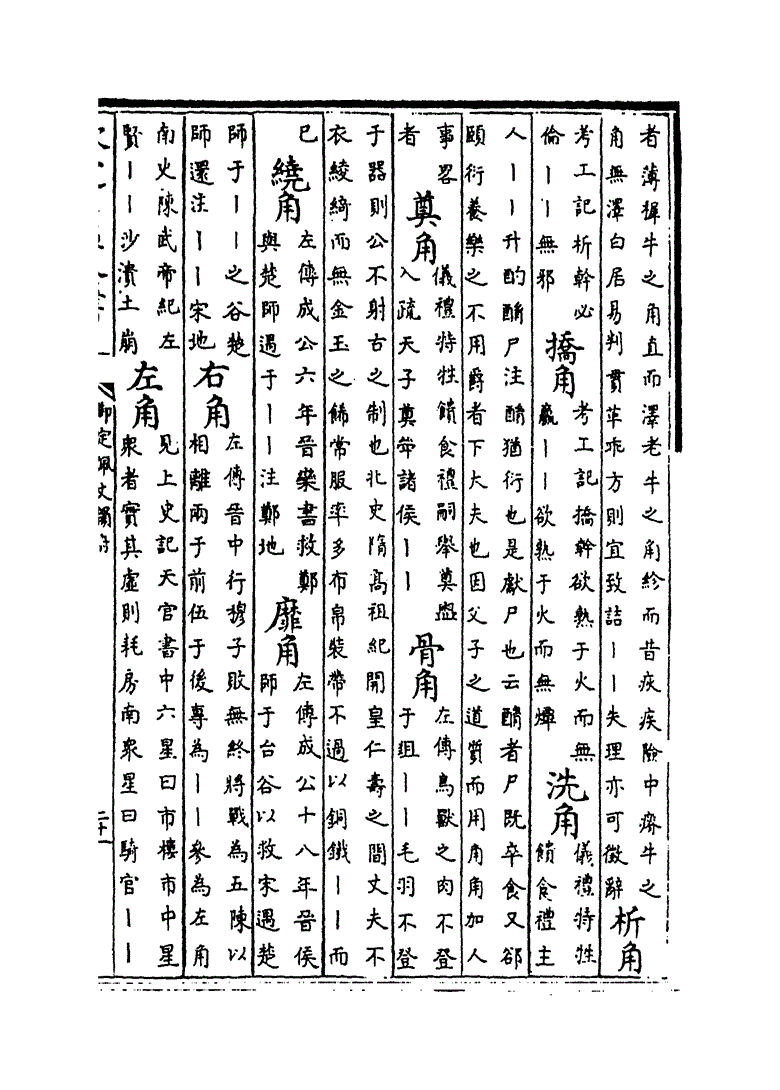 者薄稺牛之角直而澤老牛之角紾而昔疢疾險中瘠牛之
角無澤白居易判貫革乖方則宜致詰丨丨失理亦可徵辭
析角
考工記析幹必
倫丨丨無邪
撟角
考工記撟幹欲熟于火而無
贏丨丨欲熟于火而無燂
洗角
儀禮特牲
饋食禮主
人丨丨升酌酳尸注酳猶衍也是獻尸也云酳者尸既卒食又郤
頤衍養樂之不用爵者下大夫也因父子之道質而用角角加人
事畧
者
奠角
儀禮特牲饋食禮嗣舉奠盥
入疏天子奠斝諸侯丨丨
骨角
左傳鳥獸之肉不登
于俎丨丨毛羽不登
于器則公不射古之制也北史隋高祖紀開皇仁壽之間丈夫不
衣綾綺而無金玉之飾常服率多布帛裝帶不過以銅鐵丨丨而
已
繞角
左傳成公六年晉欒書救鄭
與楚師遇于丨丨注鄭地
靡角
左傳成公十八年晉侯
師于台谷以救宋遇楚
師于丨丨之谷楚
師還注丨丨宋地
右角
左傳晉中行穆子敗無終將戰為五陳以
相離兩于前伍于後專為丨丨參為左角
南史陳武帝紀左
賢丨丨沙潰土崩
左角
見上史記天官書中六星曰市樓市中星
衆者實其虛則耗房南衆星曰騎官丨丨
御定佩文韻府
二十一